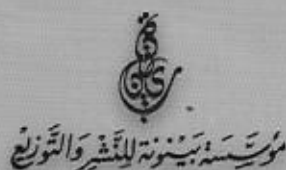 مؤسسة بينونة للنشر والتوزيع